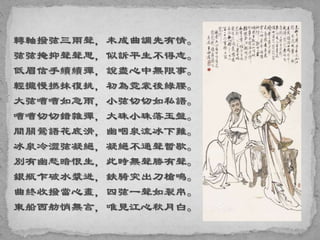 轉軸撥弦三兩聲，未成曲調先有情。
弦弦掩抑聲聲思，似訴平生不得志。
低眉信手續續彈，說盡心中無限事。
輕攏慢撚抹復挑，初為霓裳後綠腰。
大弦嘈嘈如急雨，小弦切切如私語。
嘈嘈切切錯雜彈，大珠小珠落玉盤。
間關鶯語花底滑，幽咽泉流冰下難。
冰泉冷澀弦凝絕，凝絕不通聲暫歇。
別有幽愁暗恨生，此時無聲勝有聲。
銀瓶乍破水漿迸，鐵騎突出刀槍鳴。
曲終收撥當心畫，四弦一聲如裂帛。
東船西舫悄無言，唯見江心秋月白。